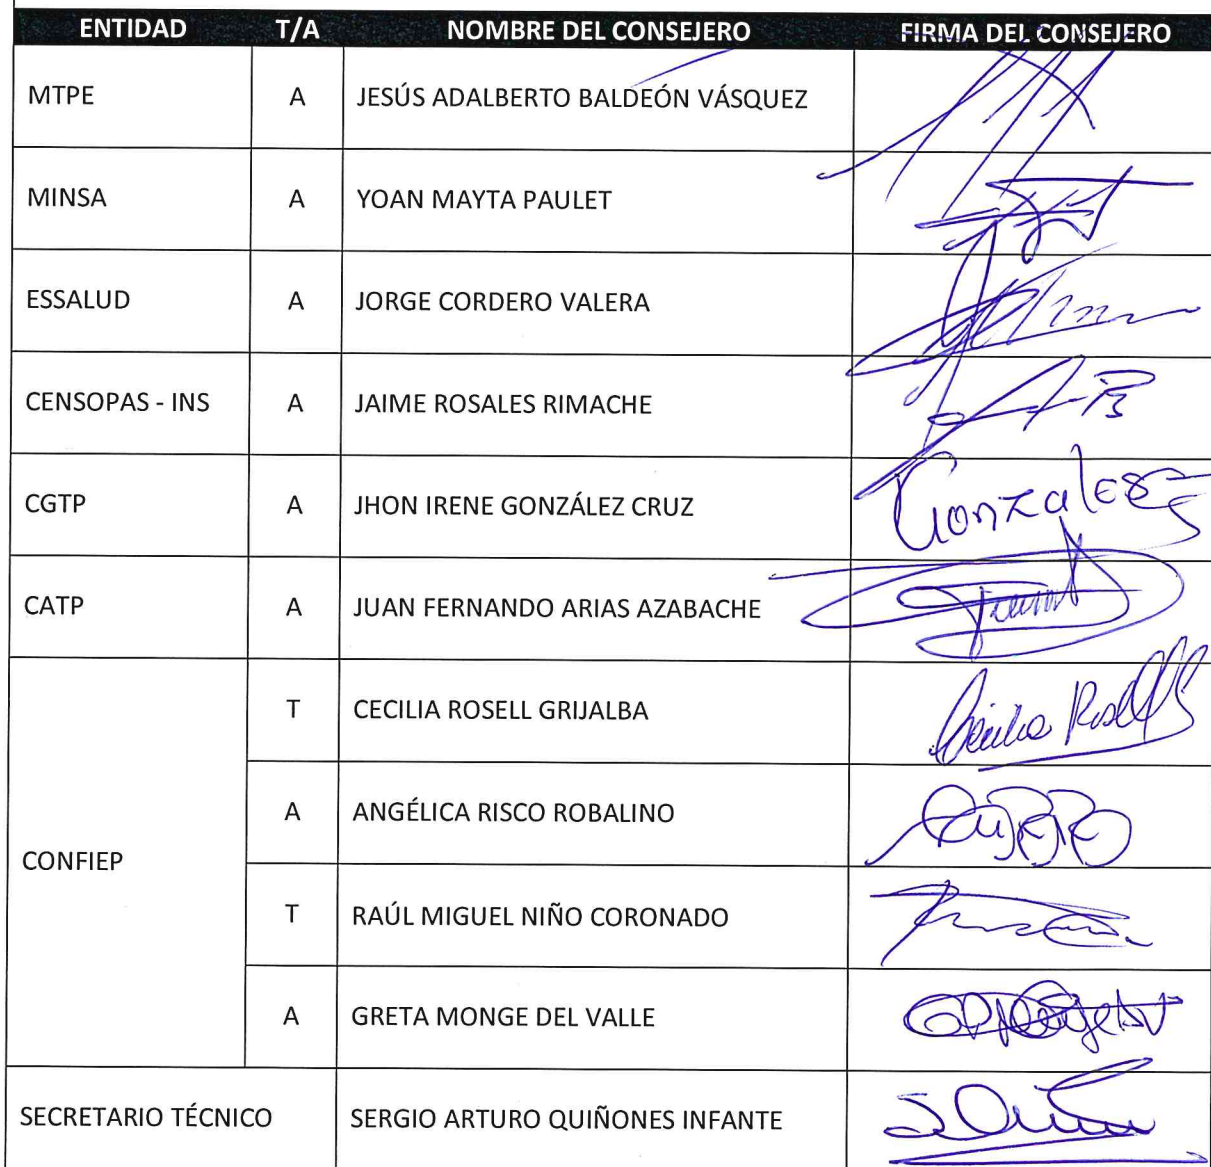 ENTIDAD T/A NOMBRE DEL CONSEJERO FIRMA DEL CONSEJERO
MTPE A JESÚS ADALBERTO BALDEÓN VÁSQUEZ
MINSA A YOAN MAYTA PAULET
ESSALUD A JORGE CORDERO VALERA
CENSOPAS - INS A JAIME ROSALES RIMACHE
CGTP A JHON IRENE GONZÁLEZ CRUZ Gonzales
CATP A JUAN FERNANDO ARIAS AZABACHE
CONFIEP
T CECILIA ROSELL GRIJALBA Cecilia Rosell
A ANGÉLICA RISCO ROBALINO
T RAÚL MIGUEL NIÑO CORONADO
A GRETA MONGE DEL VALLE
SECRETARIO TÉCNICO SERGIO ARTURO QUIÑONES INFANTE